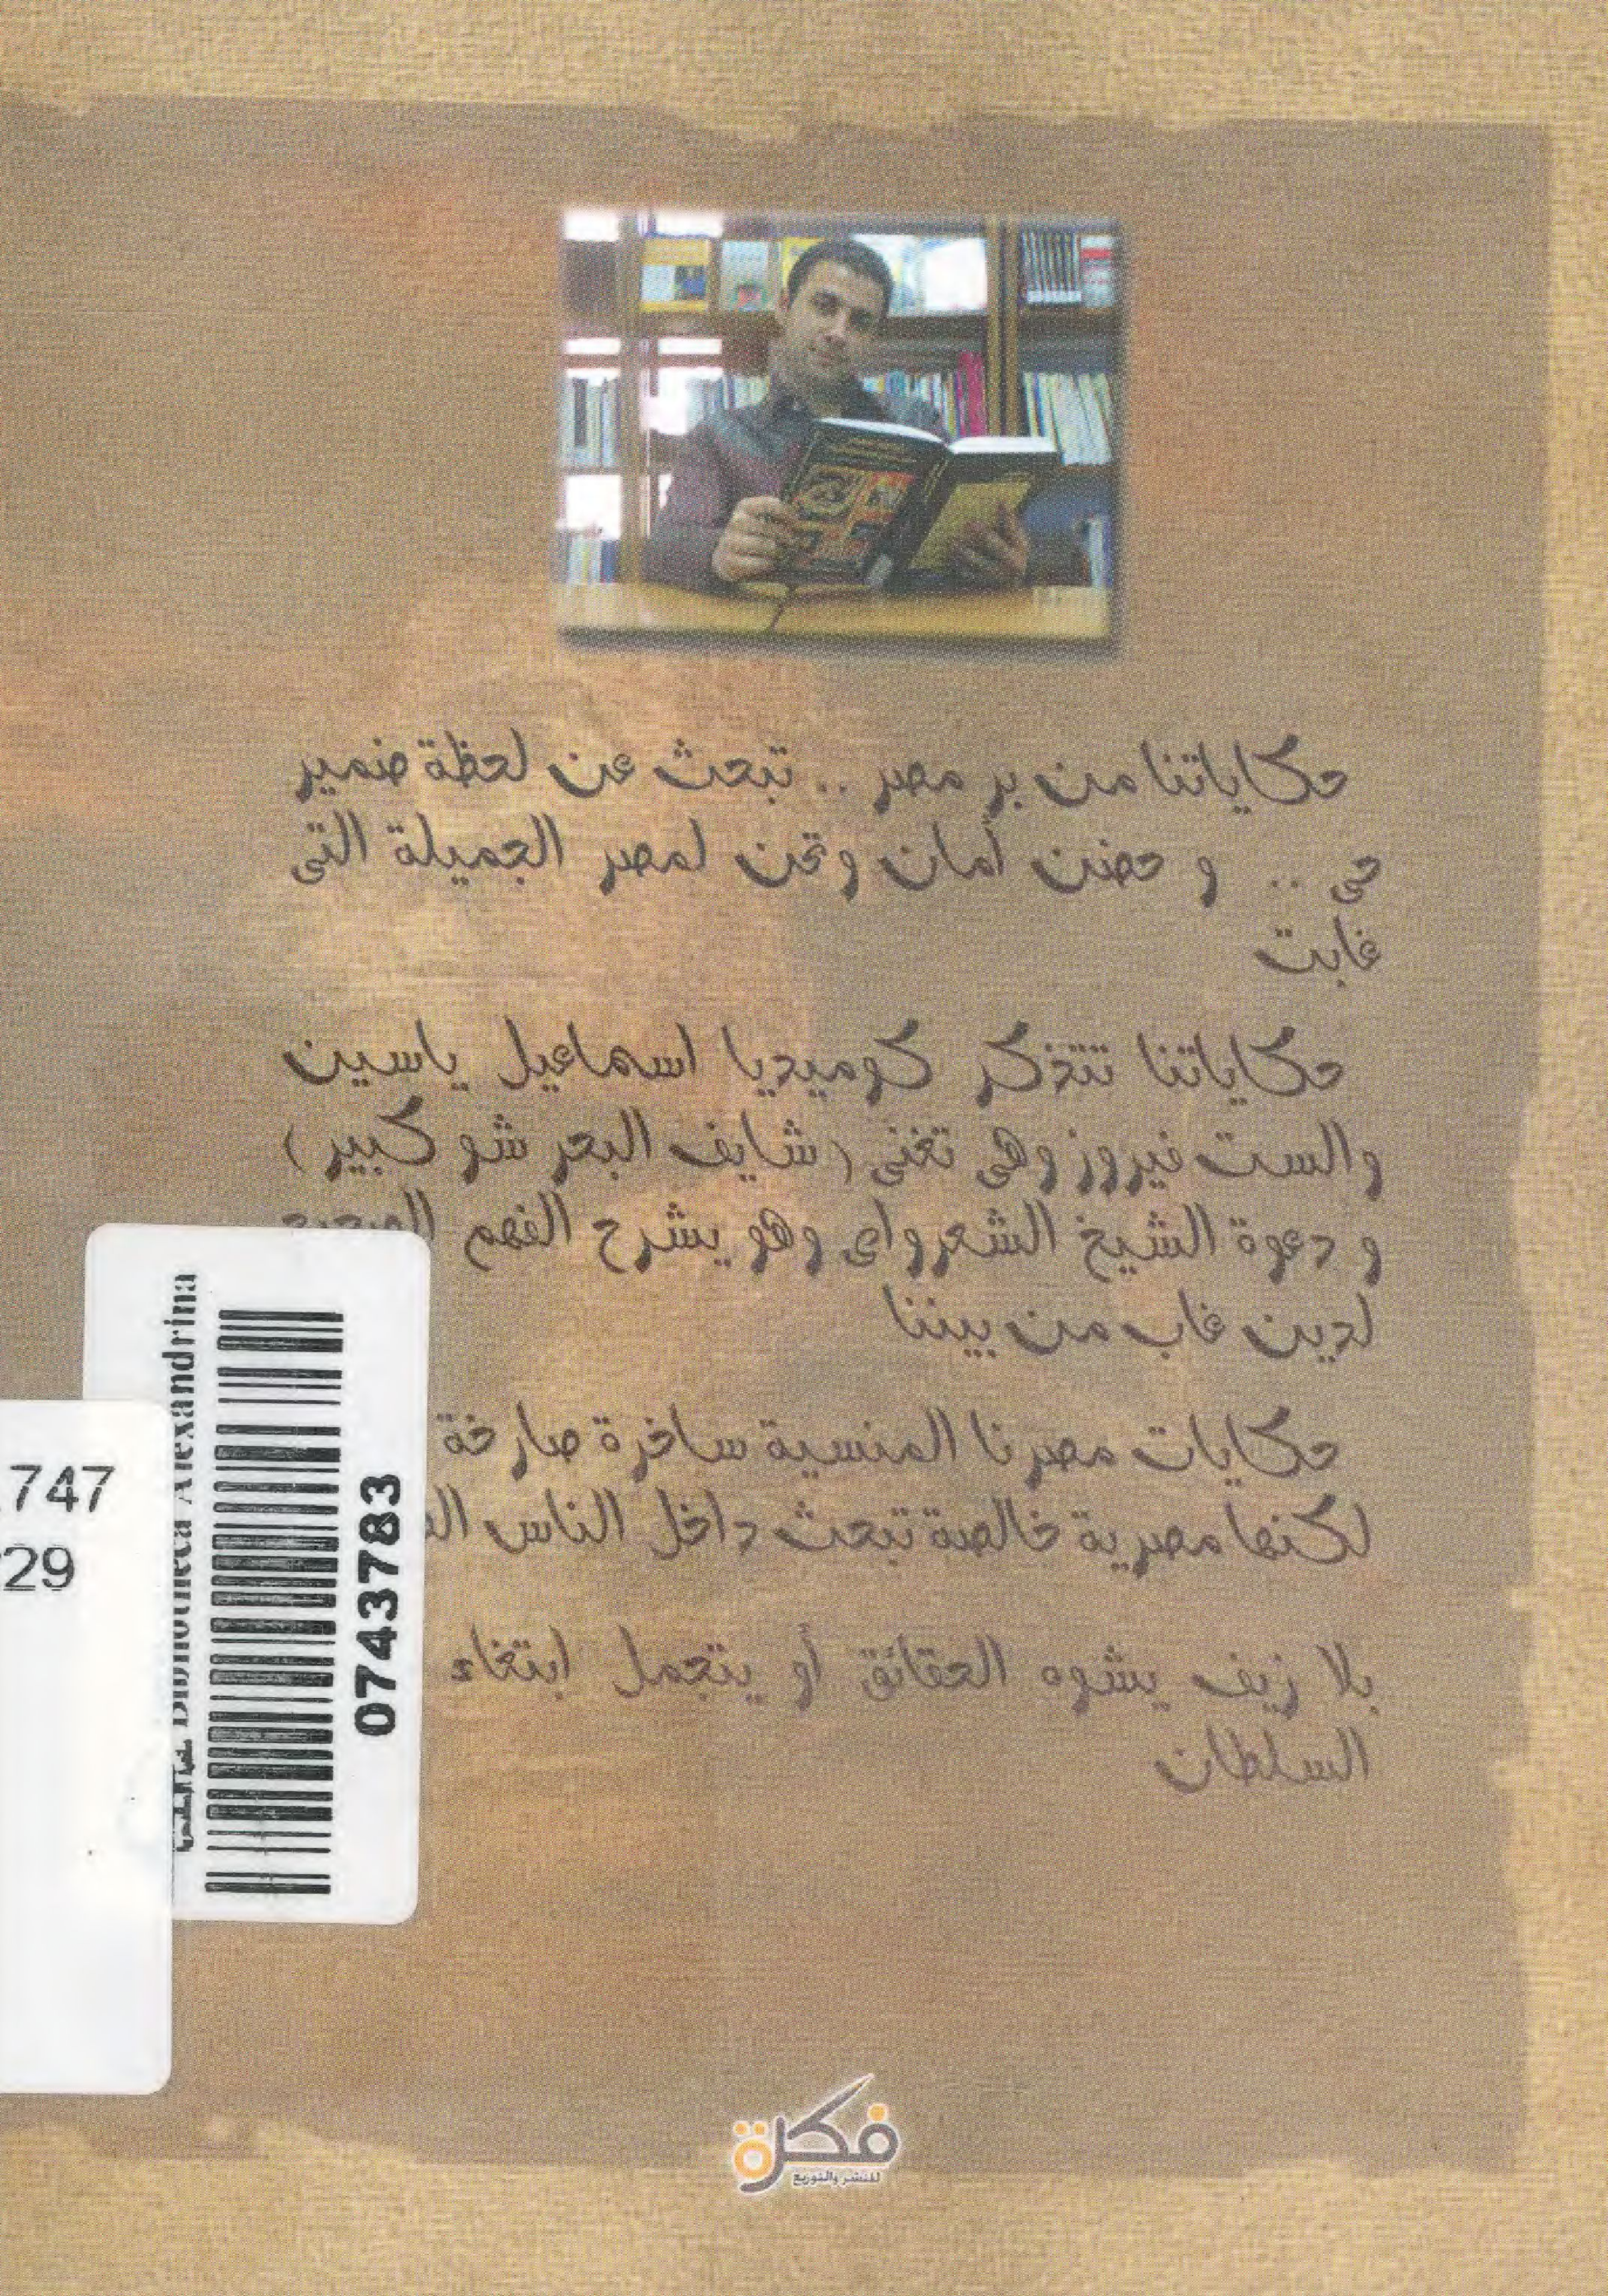 حكاياتنا من بر مصر .. تبحث عن لحظة ضمير
حى .. و حضن أمان وتحن لمصر الجميلة التى
غابت
حكاياتنا تتذكر كوميديا اسماعيل ياسين
والست فيروز وهى تغنى (شايف البحر شو كبير)
و دعوة الشيخ الشعرواى وهو يشرح الفهم الصحيح
لدين غاب من بيننا
حكايات مصرنا المنسية ساخرة صارخة
لكنها مصرية خالصة تبحث داخل الناس
بلا زيف يشوه الحقائق أو يتجمل ابتغاء
السلطان
Bibliotheca Alexandrina
0743783
747
29
فكرة
للنشر والتوزيع